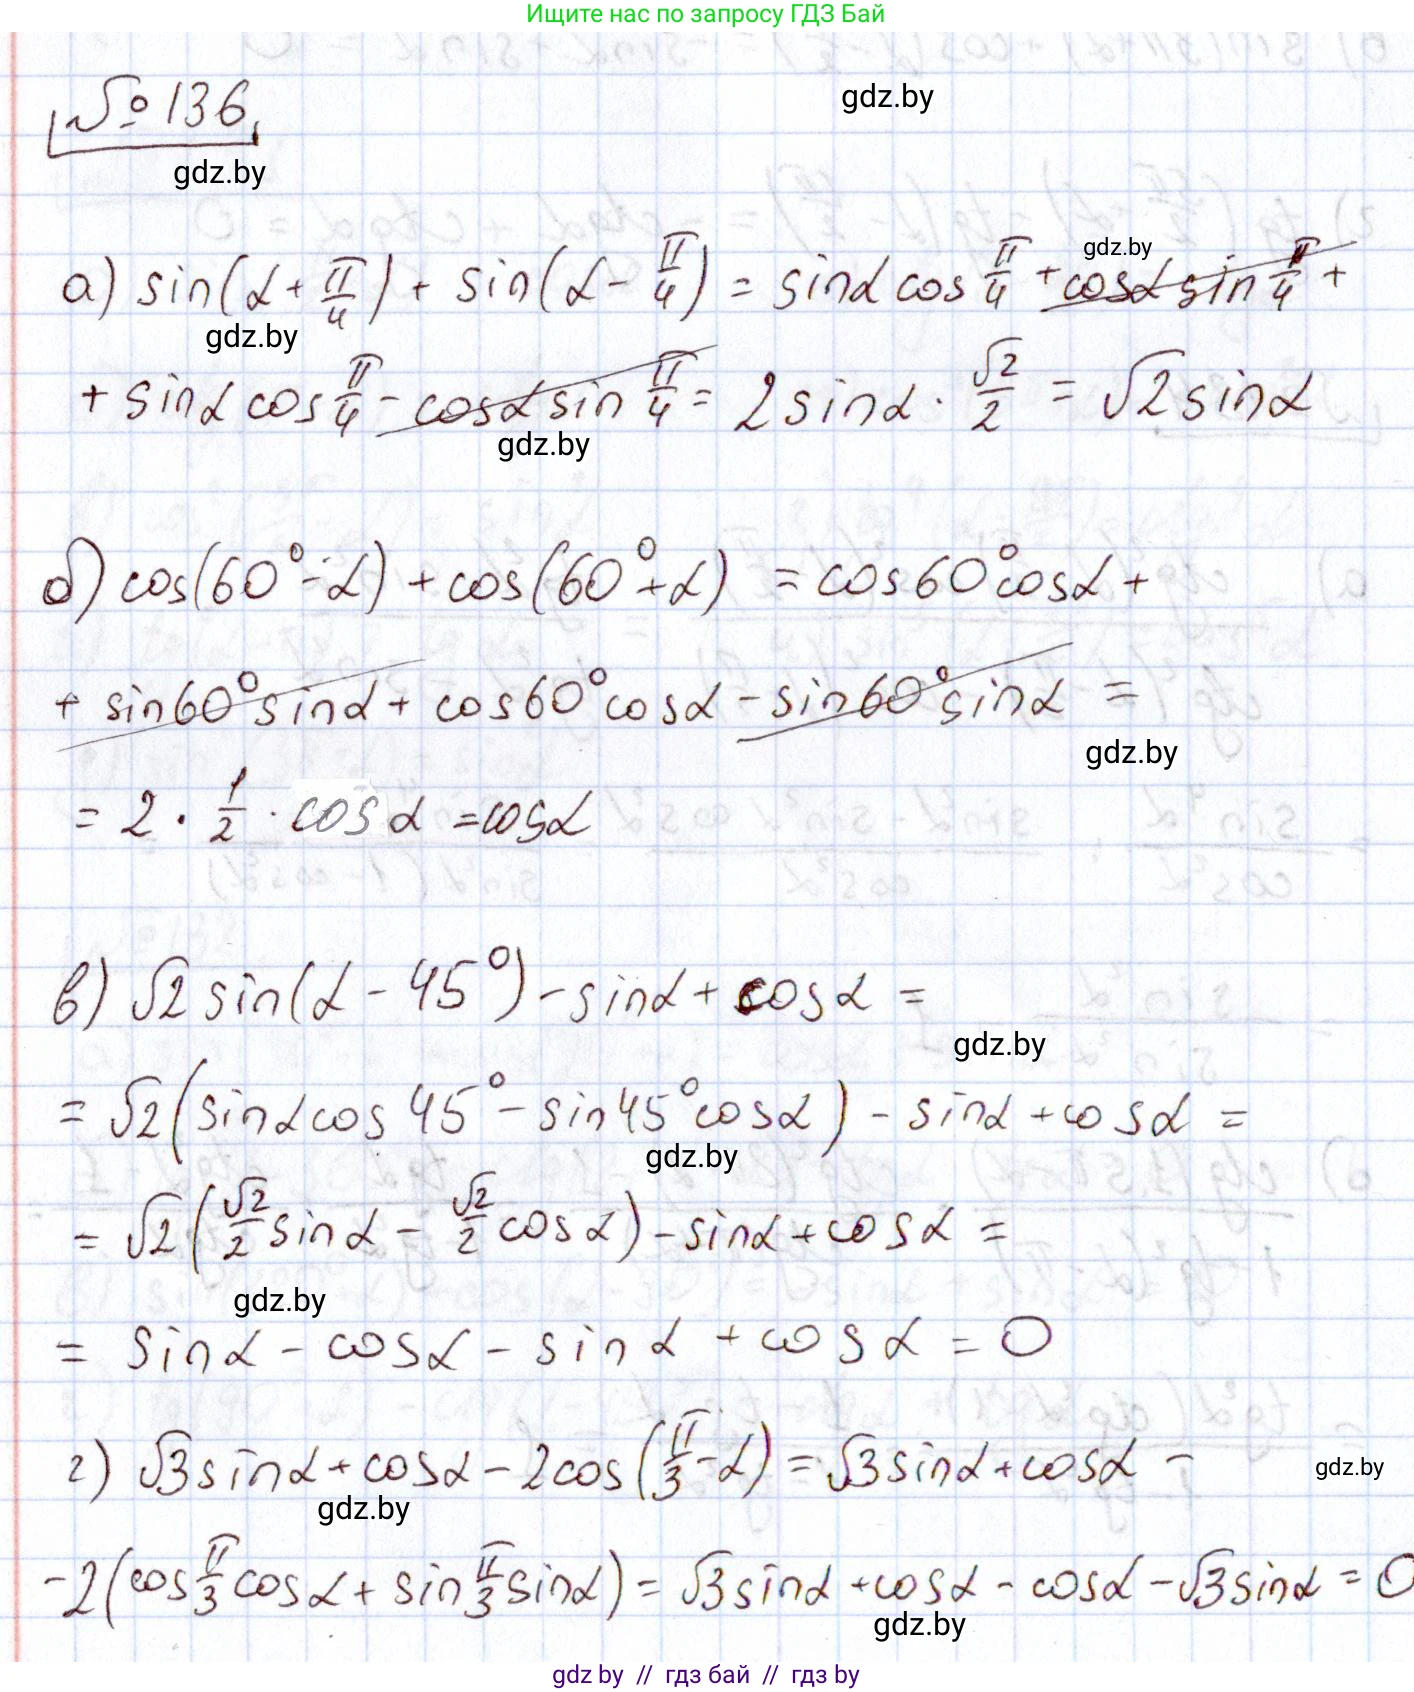 Ищите нас по запросу ГДЗ Бай
gdz.by
№136
gdz.by
gdz.by
а) sin(α + π/4) + sin(α - π/4) = sinα cos π/4 + cosα sin π/4 +
gdz.by
+ sinα cos π/4 - cosα sin π/4 = 2 sinα · √2/2 = √2 sinα
gdz.by
б) cos(60° - α) + cos(60° + α) = cos60° cosα +
+ sin60° sinα + cos60° cosα - sin60° sinα =
gdz.by
= 2 · 1/2 · cosα = cosα
в) √2 sin(α - 45°) - sinα + cosα =
gdz.by
= √2 (sinα cos45° - sin45° cosα) - sinα + cosα =
gdz.by
= √2 (√2/2 sinα - √2/2 cosα) - sinα + cosα =
gdz.by
= sinα - cosα - sinα + cosα = 0
г) √3 sinα + cosα - 2cos(π/3 - α) = √3 sinα + cosα -
gdz.by
gdz.by
-2(cos π/3 cosα + sin π/3 sinα) = √3 sinα + cosα - cosα - √3 sinα = 0
gdz.by
gdz by // гдз бай // гдз by